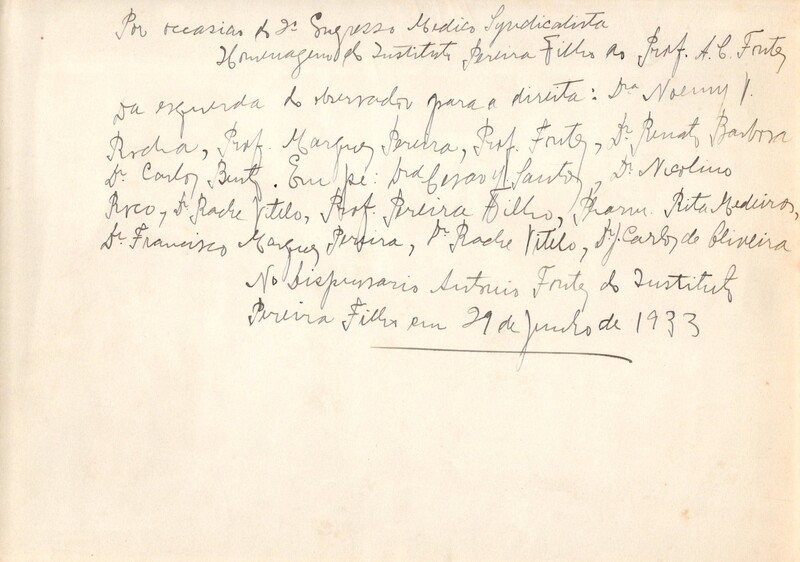 Por occasião do 2º Congresso Medico Syndicalista
Homenagem do Instituto Pereira Filho ao Prof. A. C. Fontes
Da esquerda do observador para a direita: Dra Noemy V.
Rocha, Prof. Marques Pereira, Prof. Fontes, Dr. Renato Barbosa
Dr. Carlos Bento. Em pé: Dr. Cesar Santos, Dr. Nicolino
Roco, Dr. Rache Vitelo, Prof. Pereira Filho, Pharm. Rita Medeiros,
Dr. Francisco Marques Pereira, Dr. Rache Vitelo, Dr. J. Carlos de Oliveira
No Dispensario Antonio Fontes do Instituto
Pereira Filho em 29 de Junho de 1933